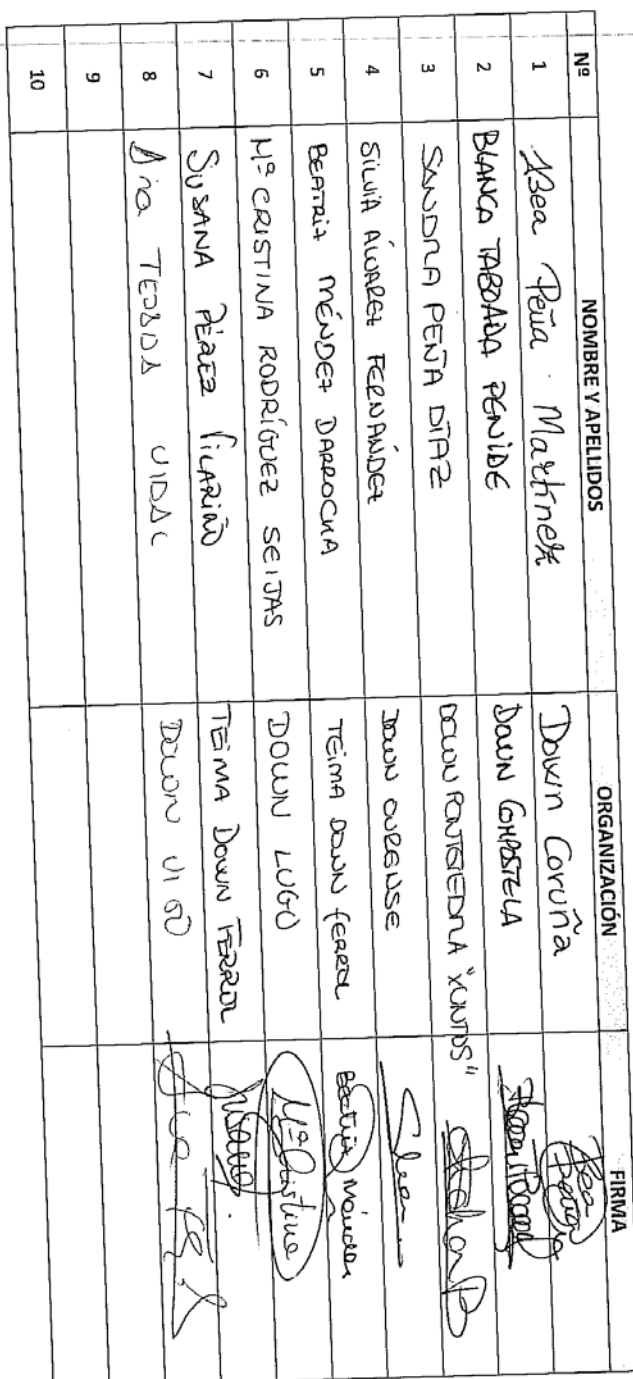 Nº NOMBRE Y APELLIDOS ORGANIZACIÓN FIRMA
1 Bea Peña Martínez Down Coruña Bea Peña
2 BLANCA TABOADA PENIDE DOWN COMPOSTELA
3 SANDRA PEÑA DÍAZ DOWN PONTEVEDRA "XUNTOS"
4 SILVIA ÁLVAREZ FERNÁNDEZ DOWN OURENSE
5 BEATRIZ MÉNDEZ DARROCHA TEIMA DOWN FERROL Beatriz Méndez
6 Mª CRISTINA RODRÍGUEZ SEIJAS DOWN LUGO Mª Cristina
7 SUSANA PÉREZ VILARIÑO TEIMA DOWN FERROL Susana
8 Ana TEJADA VIDAL DOWN VIGO
9
10